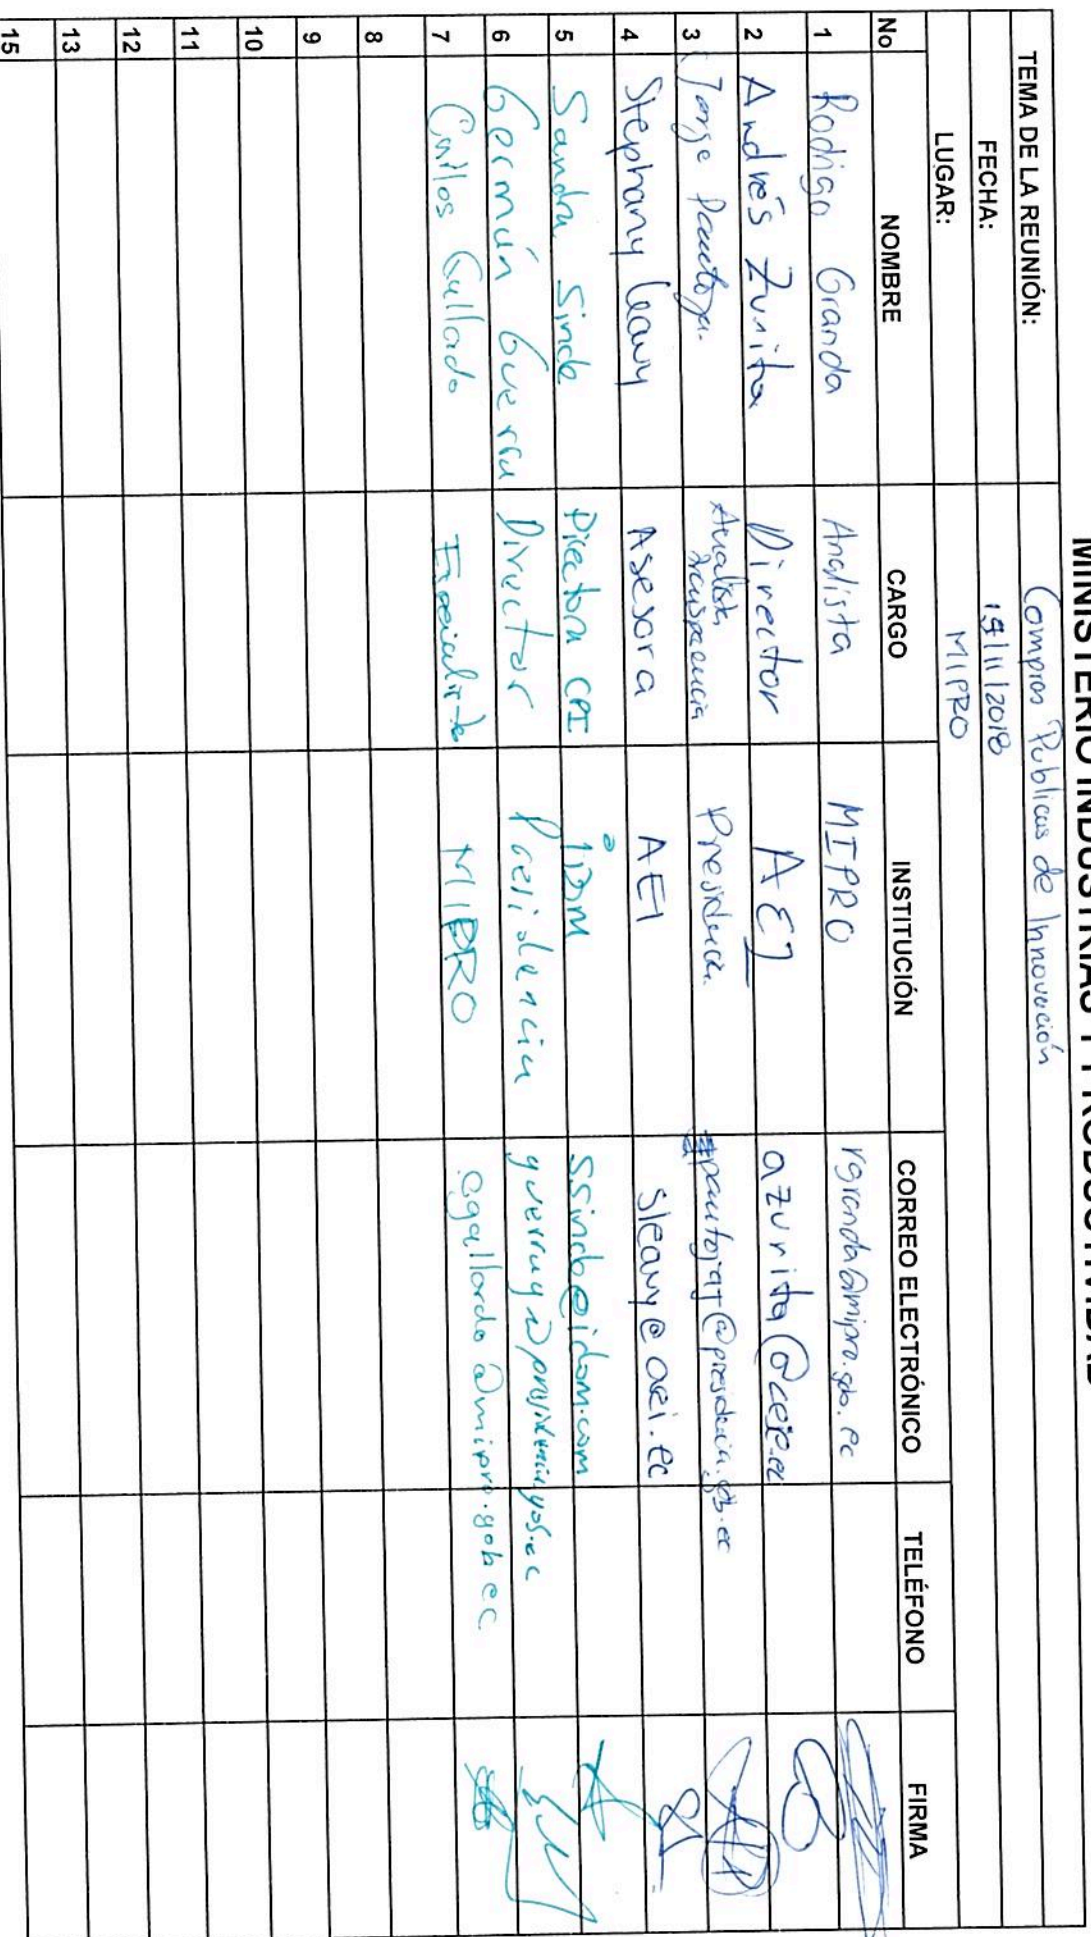 MINISTERIO INDUSTRIAS Y PRODUCTIVIDAD
TEMA DE LA REUNIÓN: Compras Publicas de Innovación
FECHA: 19/11/2018
LUGAR: MIPRO
No NOMBRE CARGO INSTITUCIÓN CORREO ELECTRÓNICO TELÉFONO FIRMA
1 Rodrigo Granda Analista MIPRO rgranda@mipro.gob.ec
2 Andrés Zurita Director AEI azurita@aei.ec
3 Jorge Pantoja. Analista Transparencia Presidencia. @presidencia.gob.ec
4 Stephany Leavy Asesora AEI sleavy@aei.ec
5 Sandra Sinde Directora CPI IDOM ssinde@idom.com
6 Germán Guerra Director Presidencia guerrag@presidencia.gob.ec
7 Carlos Gallardo Especialista MIPRO cgallardo@mipro.gob.ec
8
9
10
11
12
13
15